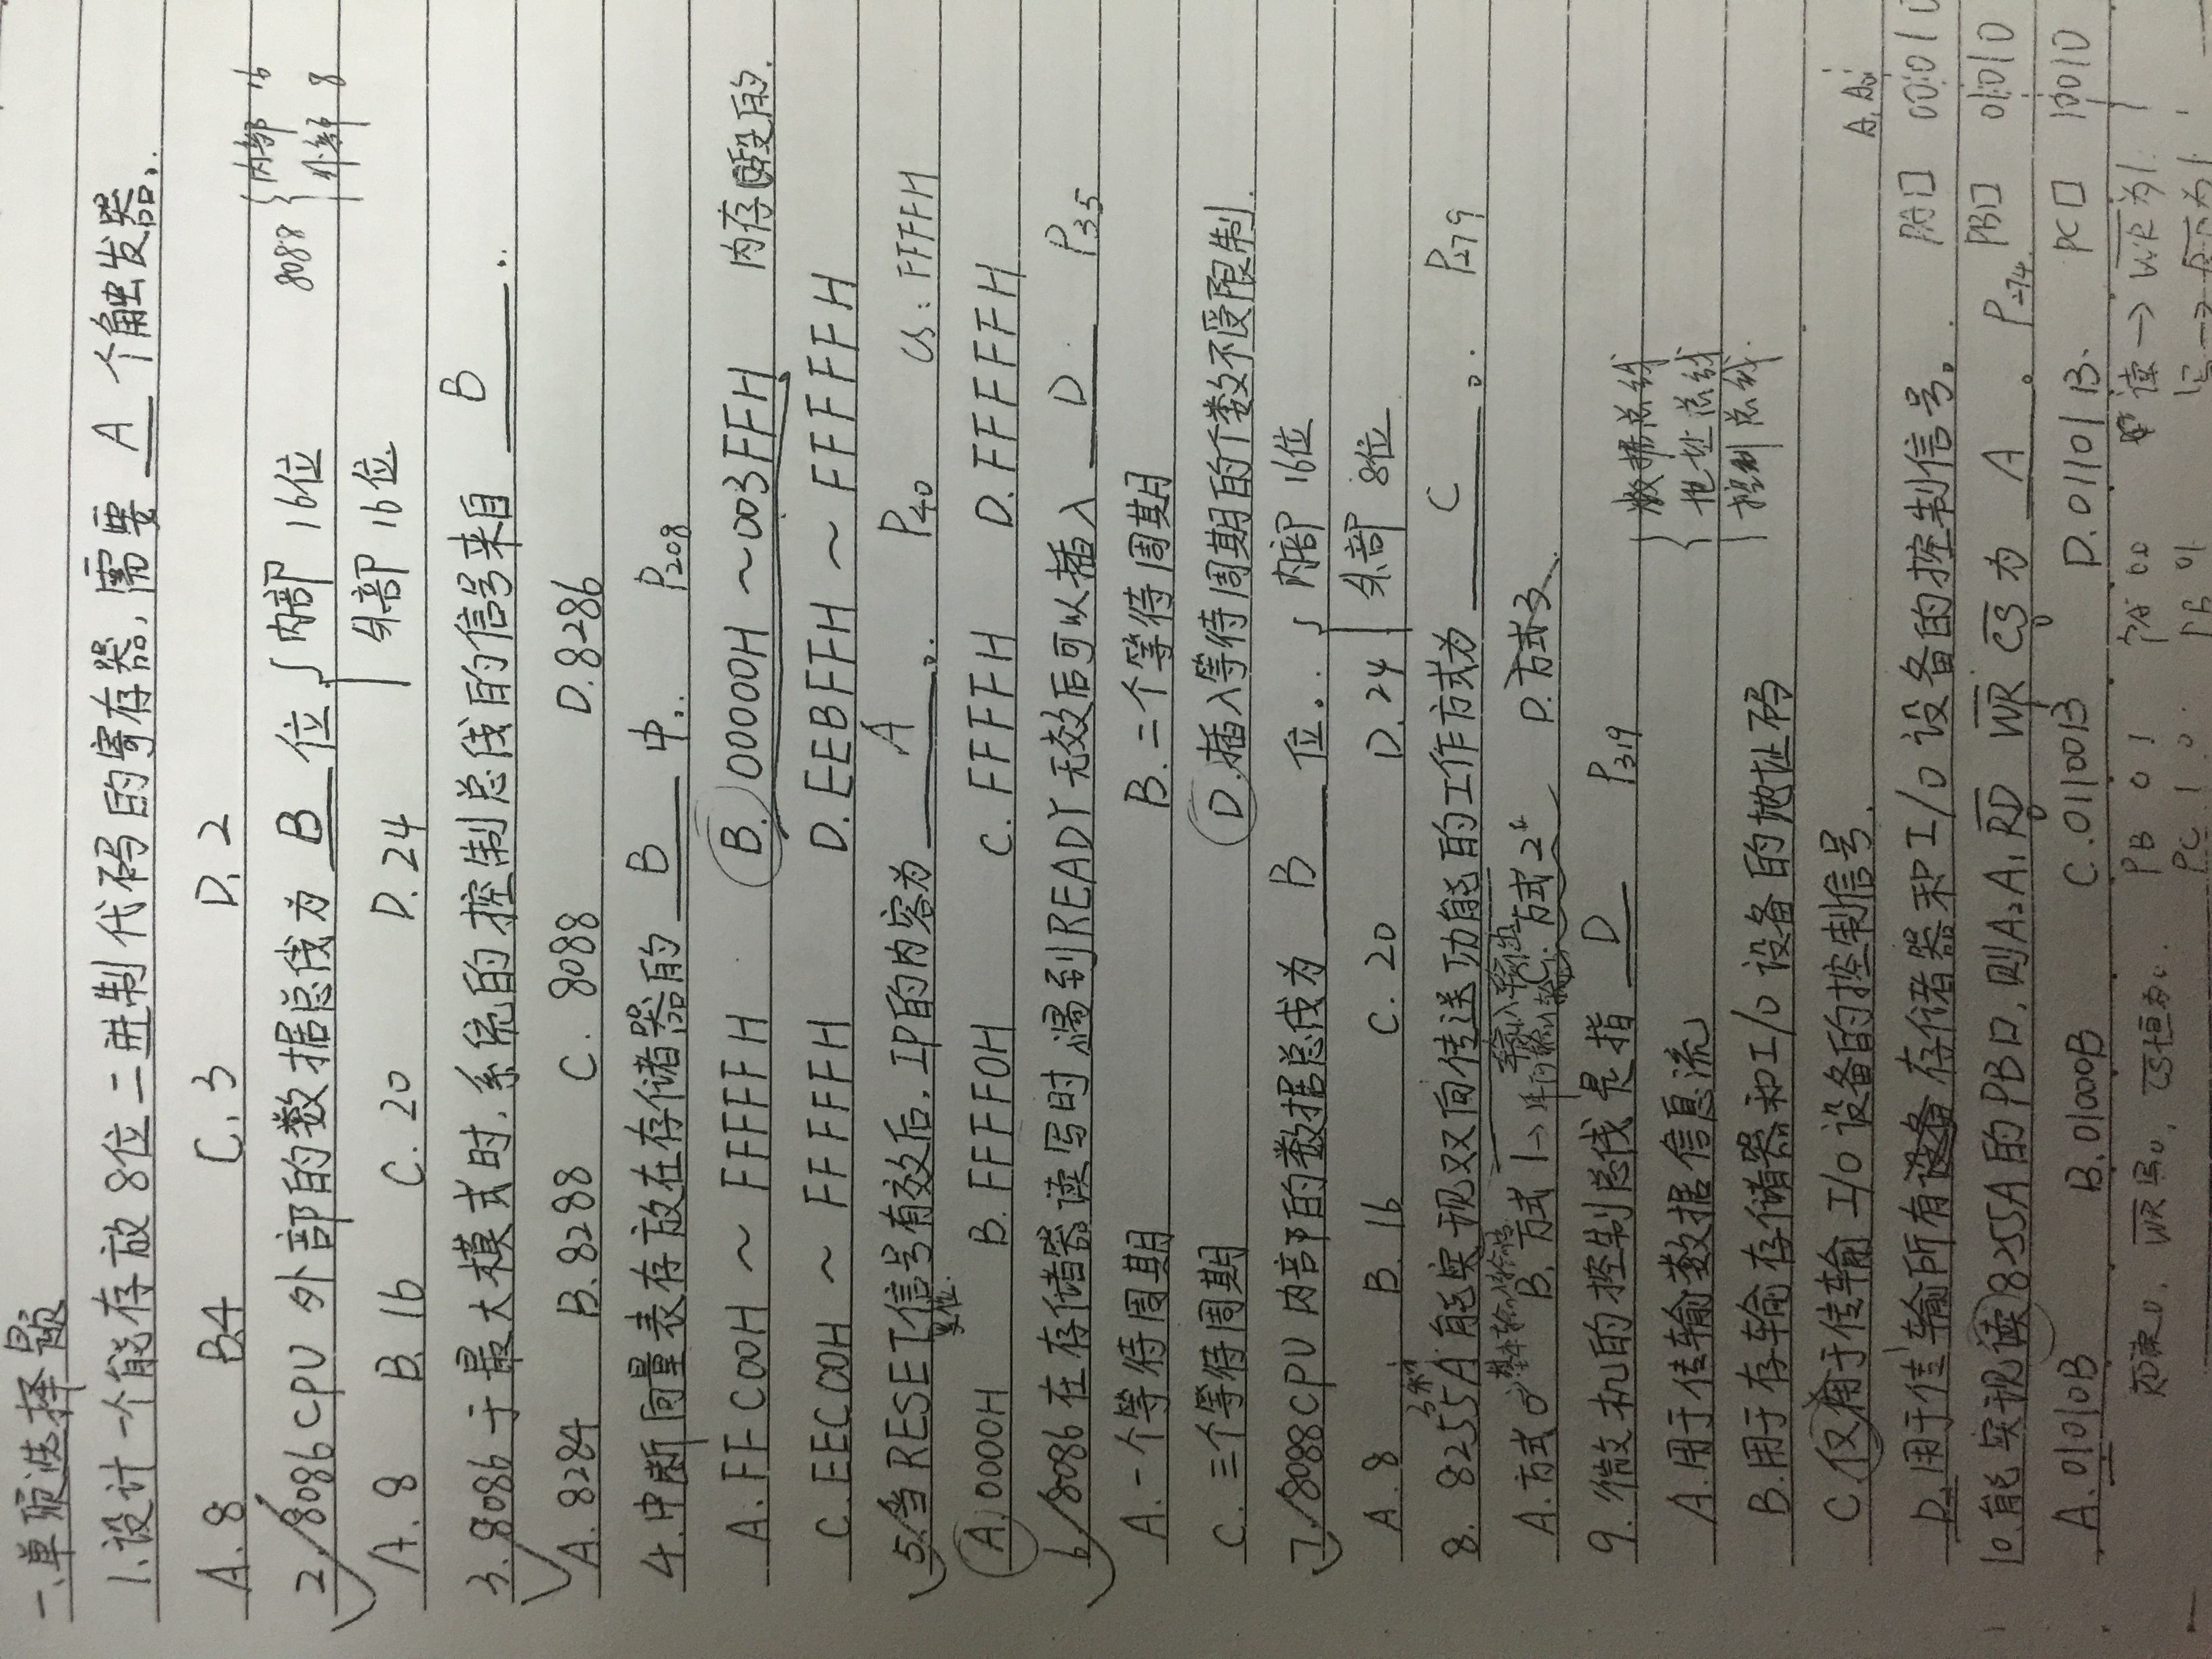 一、单项选择题
1、设计一个能存放8位二进制代码的寄存器,需要 A 个触发器。
A. 8 B.4 C. 3 D. 2
2. 8086CPU 外部的数据总线为 B 位. 内部 16位 8088 内部 16
外部 16位 外部 8
A. 8 B. 16 C. 20 D. 24
3. 8086于最大模式时,系统的控制总线的信号来自 B .
A. 8284 B. 8288 C. 8088 D. 8286
4.中断向量表存放在存储器的 B 中. P208
A. FFC00H ~ FFFFFH B. 00000H ~ 003FFH 内存0段的.
C. EEC00H ~ FFFFFH D. EEBFFH ~ FFFFFH
5.当RESET信号有效后,IP的内容为 A 。 P40 CS: FFFFH
复位.
A. 0000H B. FFFF0H C. FFFFH D. FFFFFH
6. 8086在存储器读写时,遇到READY无效后可以插入 D P35
A. 一个等待周期 B. 二个等待周期
C. 三个等待周期 D. 插入等待周期的个数不受限制.
7. 8088CPU 内部的数据总线为 B 位。 内部 16位
外部 8位
A. 8 B. 16 C. 20 D. 24
3种
8. 8255A能实现双向传送功能的工作方式为 C 。 P279
基本输入输出 输入输出
A. 方式0 B. 方式1→单向输入输出 C. 方式2 D. 方式3
9. 微机的控制总线是指 D P319
数据总线
A.用于传输数据信息流
地址总线
控制总线.
B.用于存输存储器和I/O设备的地址码
C.仅用于传输I/O设备的控制信号.
A1 A0
D.用于传输所有设备存储器和I/O设备的控制信号。 PA口 00010
10.能实现读8255A的PB口,则A2A1 RD WR CS 为 A 。 P274 PB口 01010
0 1 0
A. 01010B B. 01000B C. 01100B D. 01101B. PC口 10010
RD读0, WR写0, CS恒为0. PB 0 1 PA 00 读→WR为1.
PC 1 0 PB 01 写→RD为1